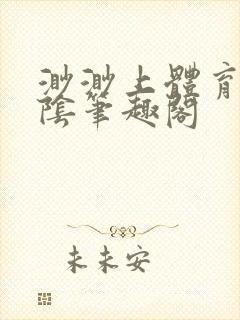 渺渺上體育
陰筆趣閣
未未安